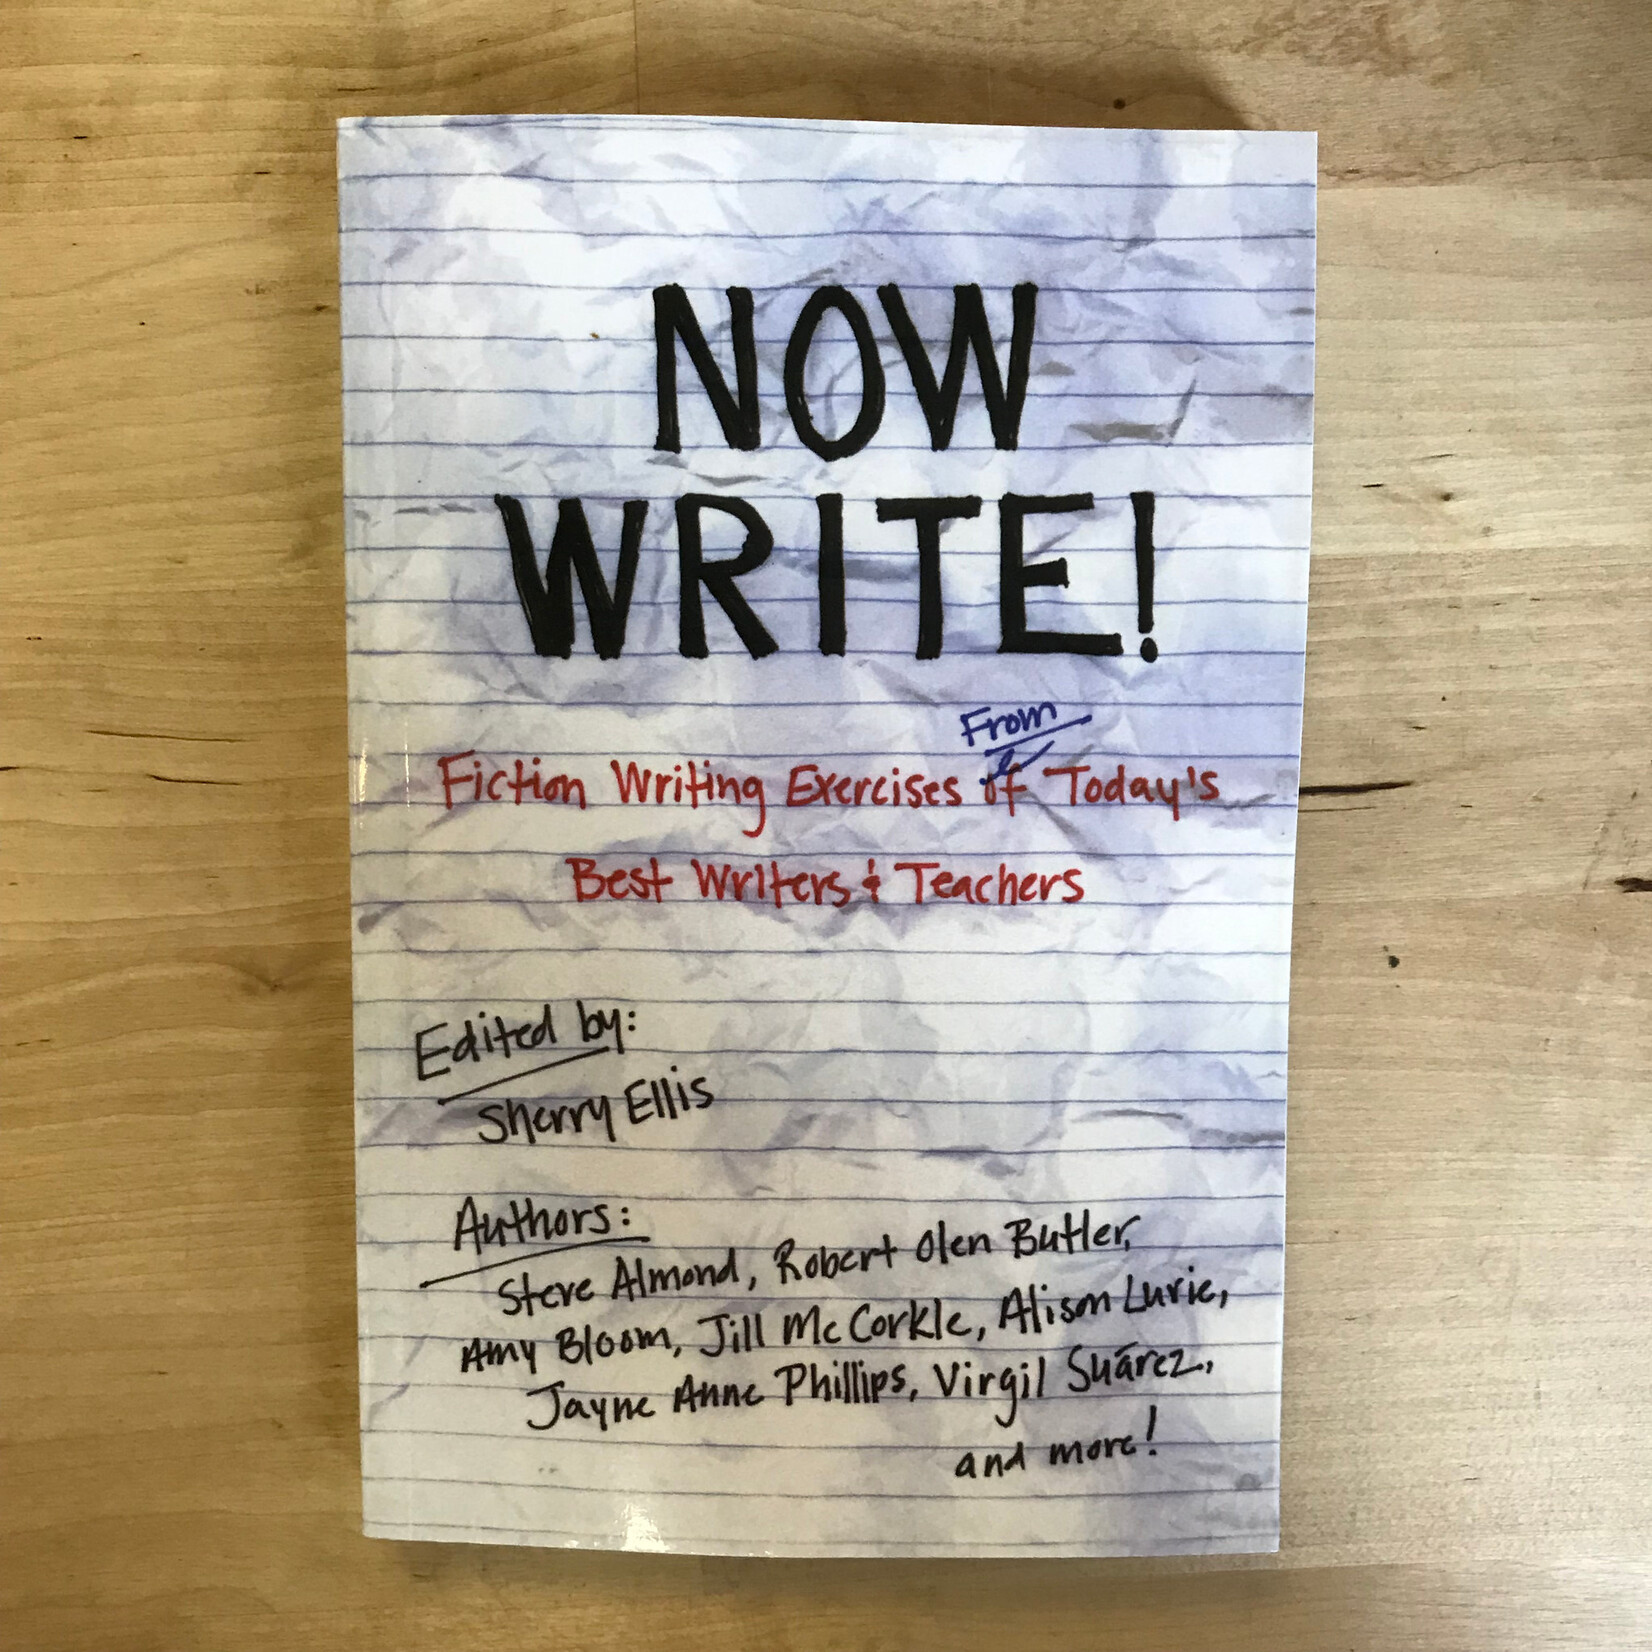 NOW
WRITE!
From
Fiction Writing Exercises of Today's
Best Writers & Teachers
Edited by:
Sherry Ellis
Authors:
Steve Almond, Robert Olen Butler,
Amy Bloom, Jill McCorkle, Alison Lurie,
Jayne Anne Phillips, Virgil Suárez,
and more!